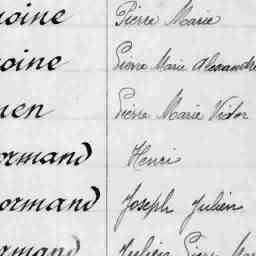 oine Pierre Marie
oine Pierre Marie Alexandre
en Pierre Marie Victor
ormand Henri
ormand Joseph Julien
ormand Julien Pierre Mar